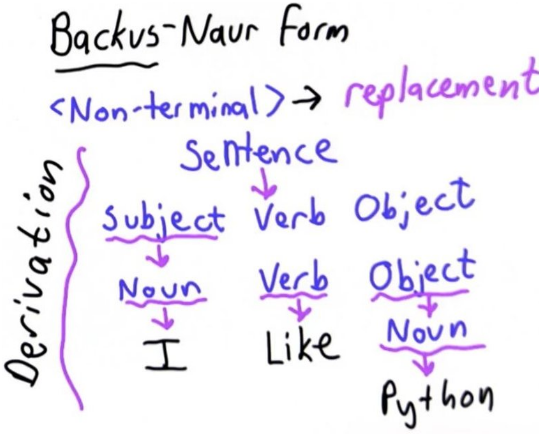 Backus-Naur Form
<Non-terminal> → replacement
Sentence
Subject Verb Object
Noun Verb Object
I Like Noun
Python
Derivation